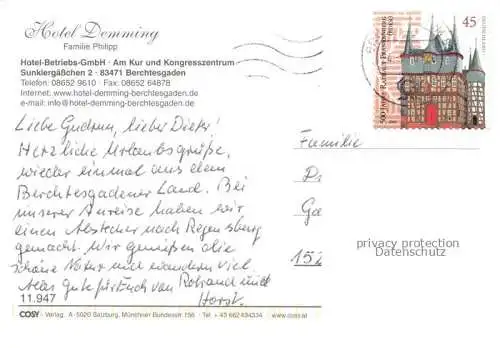 Hotel Demming
Familie Philipp
Hotel-Betriebs-GmbH · Am Kur und Kongresszentrum
Sunklergäßchen 2 · 83471 Berchtesgaden
Telefon: 08652 9610 · Fax: 08652 64878
Internet: www.hotel-demming-berchtesgaden.de
e-mail: info@hotel-demming-berchtesgaden.de
Liebe Gudrun, lieber Dieter!
Herzliche Urlaubsgrüße,
wieder einmal aus dem
Berchtesgadener Land. Bei
unserer Anreise haben wir
einen Abstecher nach Regensburg
gemacht. Wir genießen die
schöne Natur und wandern viel.
Alles Gute für Euch von und
Horst.
11.947
COSY · Verlag, A - 5020 Salzburg, Münchner Bundesstr. 156 · Tel. + 43 662 434334 · www.cosy.at
45
DEUTSCHLAND
500 JAHRE RATHAUS FRANKENBERG (EDER)
Familie
P
Ga
152
privacy protection
Datenschutz